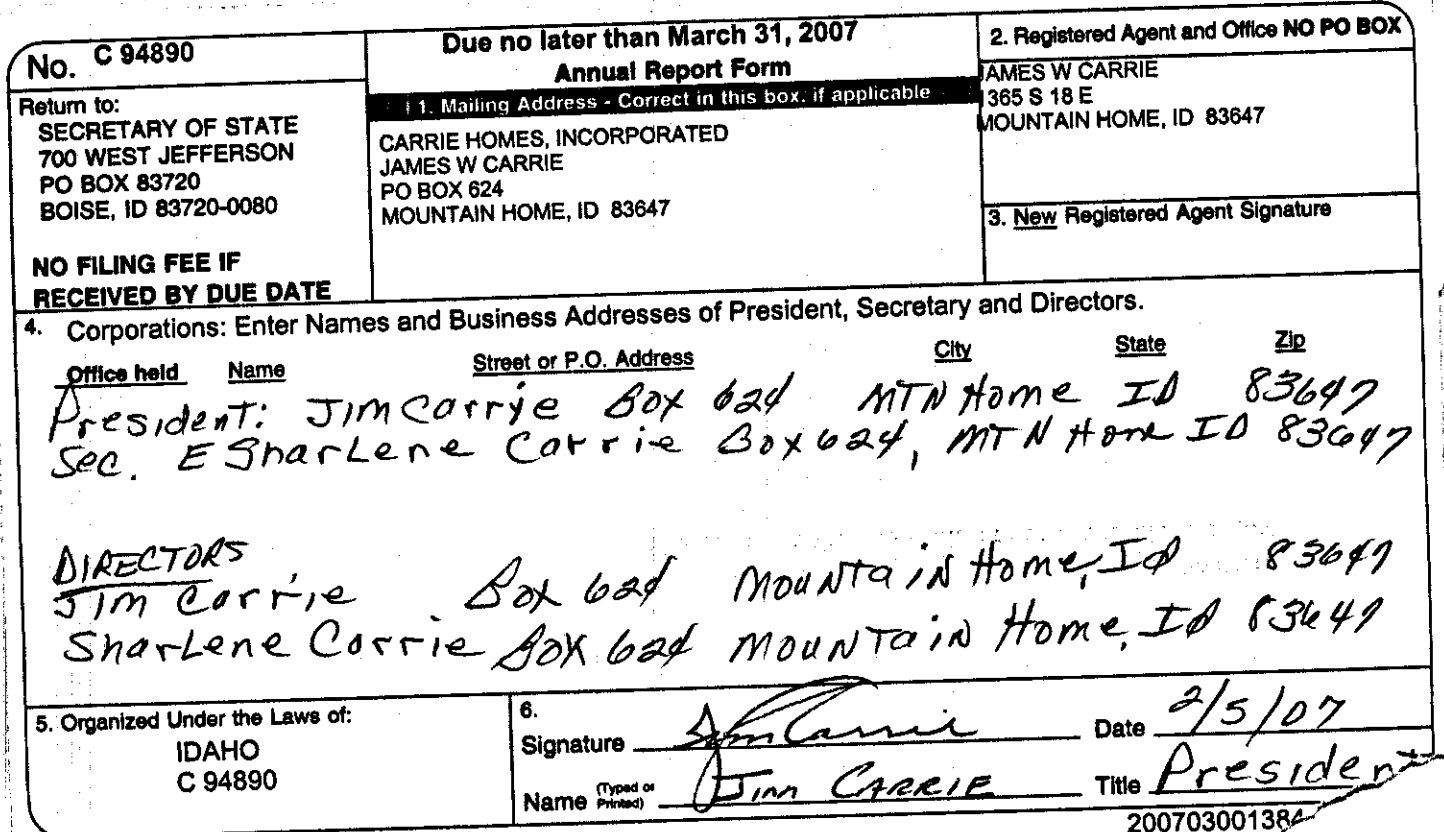 No. C 94890
Return to:
SECRETARY OF STATE
700 WEST JEFFERSON
PO BOX 83720
BOISE, ID 83720-0080
NO FILING FEE IF
RECEIVED BY DUE DATE
Due no later than March 31, 2007
Annual Report Form
1. Mailing Address - Correct in this box, if applicable
CARRIE HOMES, INCORPORATED
JAMES W CARRIE
PO BOX 624
MOUNTAIN HOME, ID 83647
2. Registered Agent and Office NO PO BOX
JAMES W CARRIE
365 S 18 E
MOUNTAIN HOME, ID 83647
3. New Registered Agent Signature
4. Corporations: Enter Names and Business Addresses of President, Secretary and Directors.
Office held Name Street or P.O. Address City State Zip
President: Jim Carrie Box 624 MTN Home ID 83647
Sec. E Sharlene Carrie Box 624, MTN Home ID 83647
DIRECTORS
Jim Carrie Box 624 Mountain Home, Id 83647
Sharlene Carrie Box 624 Mountain Home, Id 83647
5. Organized Under the Laws of:
IDAHO
C 94890
6.
Signature Jim Carrie Date 2/5/07
Name (Typed or Printed) Jim CARRIE Title President
200703001384